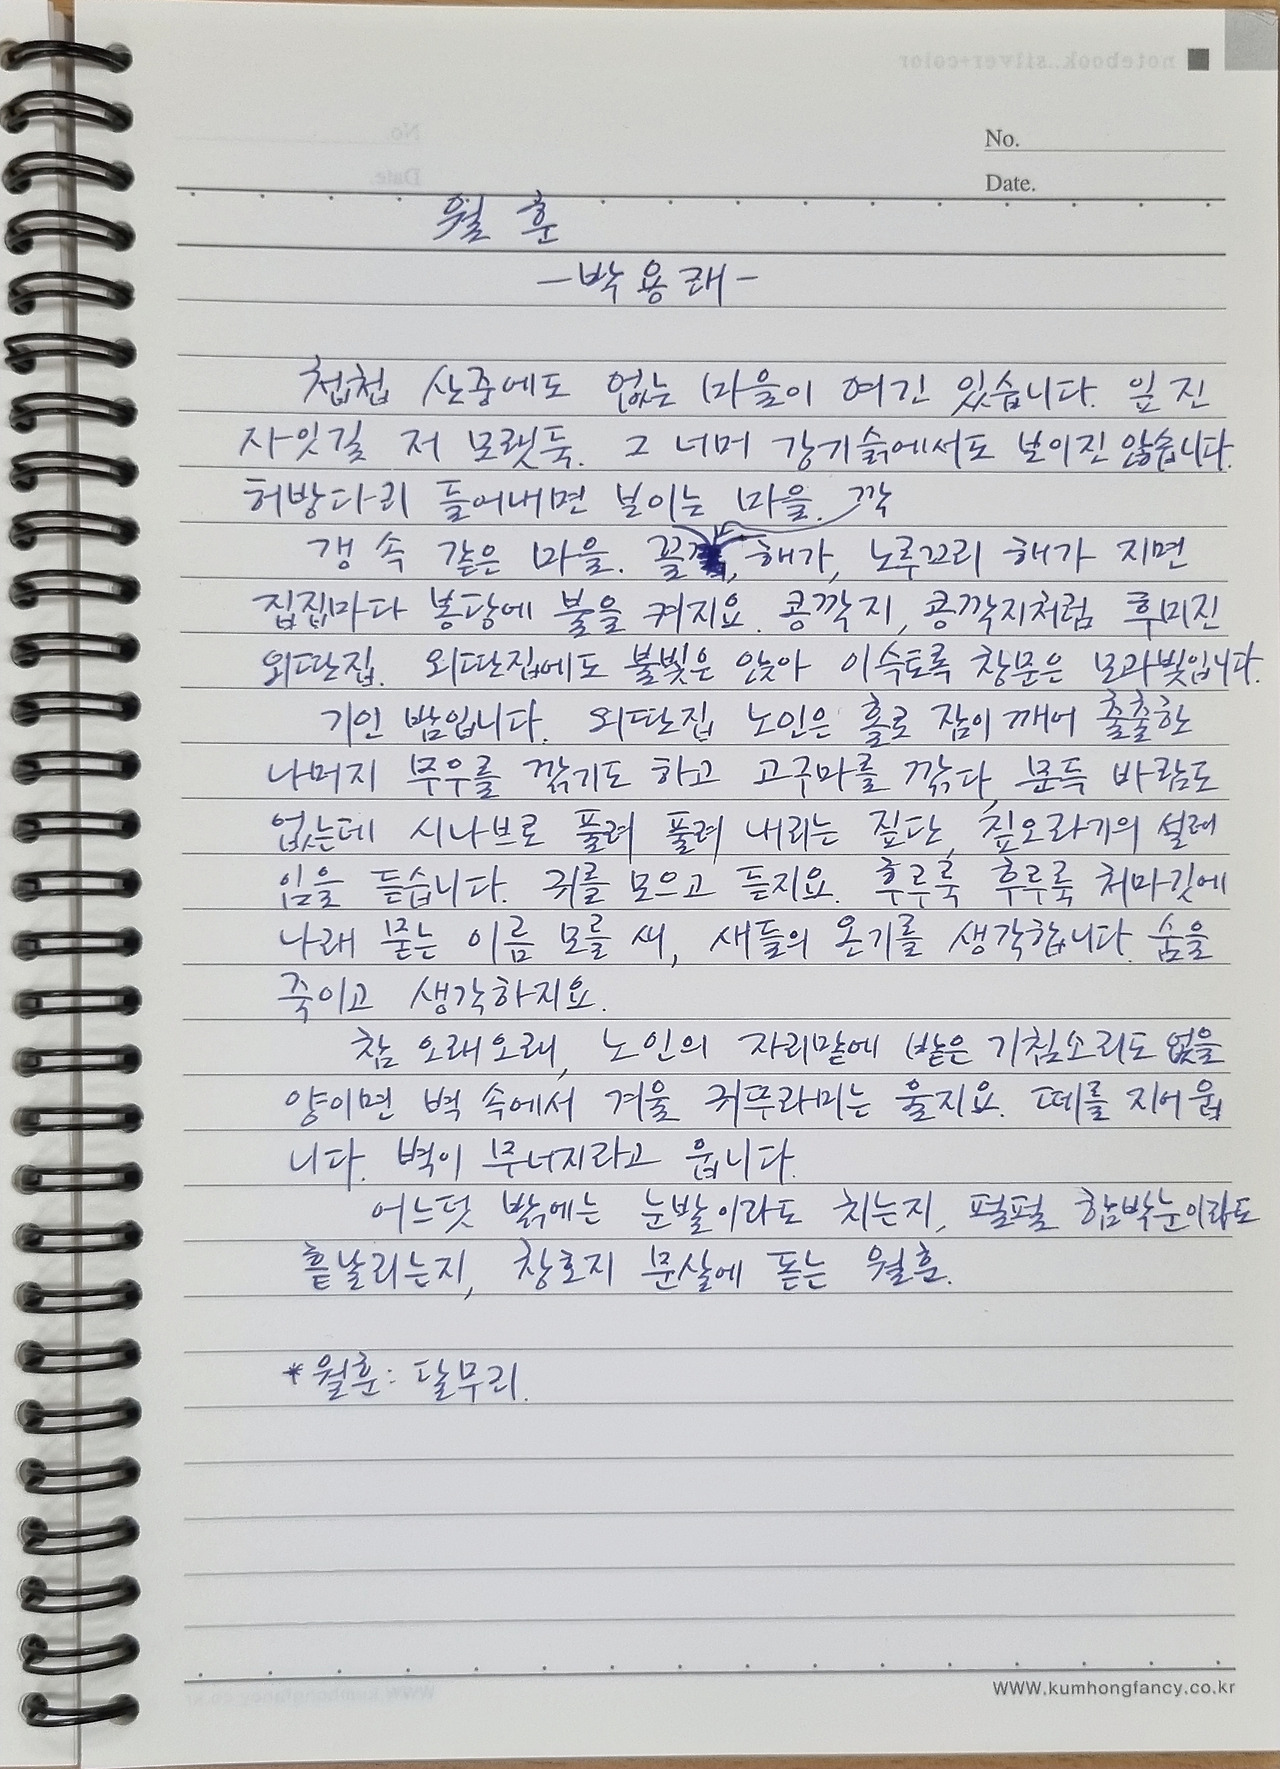 notebook..silver+color
No.
Date.
월훈
-박용래-
첩첩 산중에도 없는 마을이 여긴 있습니다. 잎 진
사잇길 저 모랫둑. 그 너머 강기슭에서도 보이진 않습니다.
허방다리 들어내면 보이는 마을.
갱 속 같은 마을. 꼴깍, 해가, 노루꼬리 해가 지면
집집마다 봉당에 불을 켜지요. 콩깍지, 콩깍지처럼 후미진
외딴집. 외딴집에도 불빛은 앉아 이슥토록 창문은 모과빛입니다.
기인 밤입니다. 외딴집 노인은 홀로 잠이 깨어 출출한
나머지 무우를 깎기도 하고 고구마를 깎다, 문득 바람도
없는데 시나브로 풀려 풀려 내리는 짚단, 짚오라기의 설레
임을 듣습니다. 귀를 모으고 듣지요. 후루룩 후루룩 처마깃에
나래 묻는 이름 모를 새, 새들의 온기를 생각합니다. 숨을
죽이고 생각하지요.
참 오래오래, 노인의 자리맡에 밭은 기침소리도 없을
양이면 벽 속에서 겨울 귀뚜라미는 울지요. 떼를 지어 웁
니다. 벽이 무너지라고 웁니다.
어느덧 밖에는 눈발이라도 치는지, 펄펄 함박눈이라도
흩날리는지, 창호지 문살에 돋는 월훈.
*월훈: 달무리.
WWW.kumhongfancy.co.kr